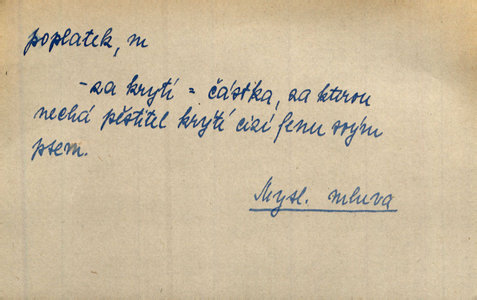 poplatek, m
- za krytí = částka, za kterou
nechá pěstitel krýti cizí fenu svým
psem.
Mysl. mluva